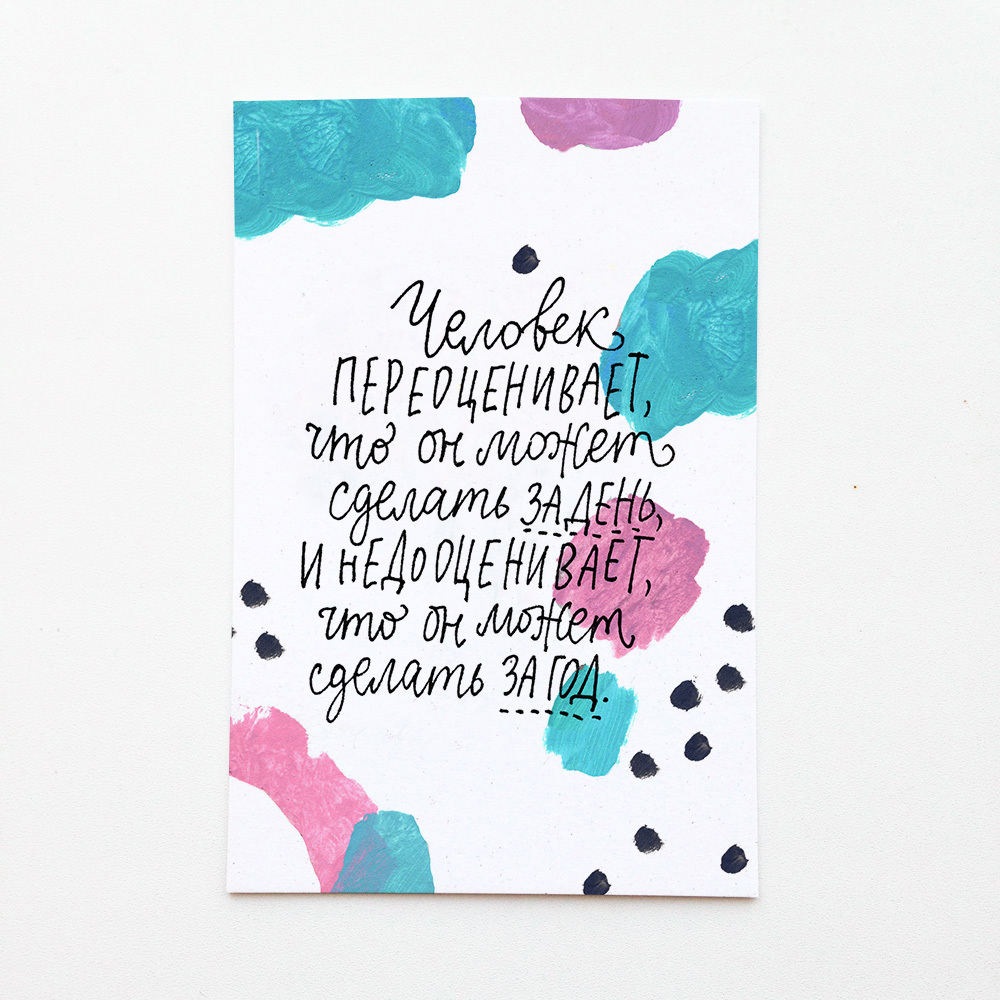 Человек
ПЕРЕОЦЕНИВАЕТ,
что он может
сделать ЗА ДЕНЬ,
И НЕДООЦЕНИВАЕТ,
что он может
сделать ЗА ГОД.